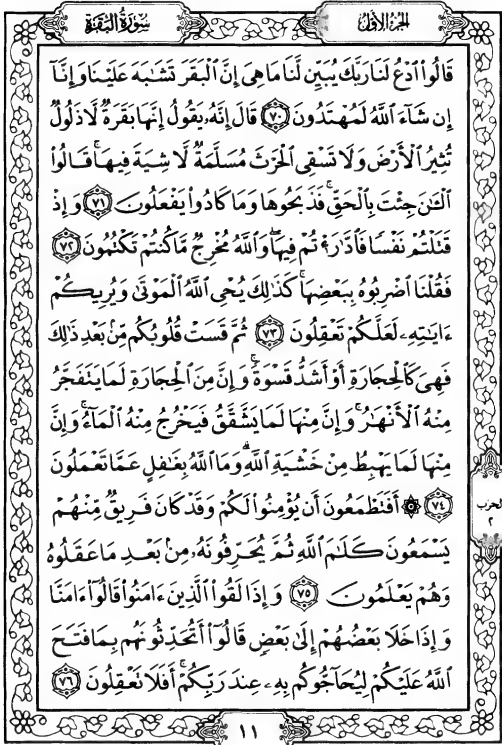 سُورَةُ البَقَرَةِ
الجُزءُ الأوَّلُ
قَالُوا۟ ٱدْعُ لَنَا رَبَّكَ يُبَيِّن لَّنَا مَا هِىَ إِنَّ ٱلْبَقَرَ تَشَٰبَهَ عَلَيْنَا وَإِنَّآ
إِن شَآءَ ٱللَّهُ لَمُهْتَدُونَ ٧٠ قَالَ إِنَّهُۥ يَقُولُ إِنَّهَا بَقَرَةٌ لَّا ذَلُولٌ
تُثِيرُ ٱلْأَرْضَ وَلَا تَسْقِى ٱلْحَرْثَ مُسَلَّمَةٌ لَّا شِيَةَ فِيهَا ۚ قَالُوا۟
ٱلْـَٰٔنَ جِئْتَ بِٱلْحَقِّ ۚ فَذَبَحُوهَا وَمَا كَادُوا۟ يَفْعَلُونَ ٧١ وَإِذْ
قَتَلْتُمْ نَفْسًا فَٱدَّٰرَْٰٔتُمْ فِيهَا ۖ وَٱللَّهُ مُخْرِجٌ مَّا كُنتُمْ تَكْتُمُونَ ٧٢
فَقُلْنَا ٱضْرِبُوهُ بِبَعْضِهَا ۚ كَذَٰلِكَ يُحْىِ ٱللَّهُ ٱلْمَوْتَىٰ وَيُرِيكُمْ
ءَايَٰتِهِۦ لَعَلَّكُمْ تَعْقِلُونَ ٧٣ ثُمَّ قَسَتْ قُلُوبُكُم مِّنۢ بَعْدِ ذَٰلِكَ
فَهِىَ كَٱلْحِجَارَةِ أَوْ أَشَدُّ قَسْوَةً ۚ وَإِنَّ مِنَ ٱلْحِجَارَةِ لَمَا يَتَفَجَّرُ
مِنْهُ ٱلْأَنْهَٰرُ ۚ وَإِنَّ مِنْهَا لَمَا يَشَّقَّقُ فَيَخْرُجُ مِنْهُ ٱلْمَآءُ ۚ وَإِنَّ
مِنْهَا لَمَا يَهْبِطُ مِنْ خَشْيَةِ ٱللَّهِ ۗ وَمَا ٱللَّهُ بِغَٰفِلٍ عَمَّا تَعْمَلُونَ
٧٤ ۞ أَفَتَطْمَعُونَ أَن يُؤْمِنُوا۟ لَكُمْ وَقَدْ كَانَ فَرِيقٌ مِّنْهُمْ
يَسْمَعُونَ كَلَٰمَ ٱللَّهِ ثُمَّ يُحَرِّفُونَهُۥ مِنۢ بَعْدِ مَا عَقَلُوهُ
وَهُمْ يَعْلَمُونَ ٧٥ وَإِذَا لَقُوا۟ ٱلَّذِينَ ءَامَنُوا۟ قَالُوٓا۟ ءَامَنَّا
وَإِذَا خَلَا بَعْضُهُمْ إِلَىٰ بَعْضٍ قَالُوٓا۟ أَتُحَدِّثُونَهُم بِمَا فَتَحَ
ٱللَّهُ عَلَيْكُمْ لِيُحَآجُّوكُم بِهِۦ عِندَ رَبِّكُمْ ۚ أَفَلَا تَعْقِلُونَ ٧٦
الحزب
٢
١١